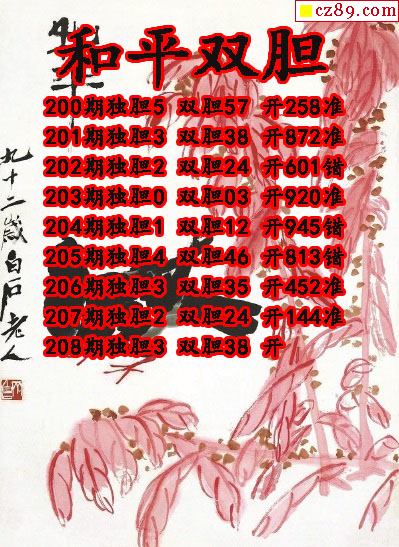 cz89.com
和平双胆
200期独胆5 双胆57 开258准
201期独胆3 双胆38 开872准
202期独胆2 双胆24 开601错
203期独胆0 双胆03 开920准
204期独胆1 双胆12 开945错
205期独胆4 双胆46 开813错
206期独胆3 双胆35 开452准
207期独胆2 双胆24 开144准
208期独胆3 双胆38 开
九十二岁白石老人